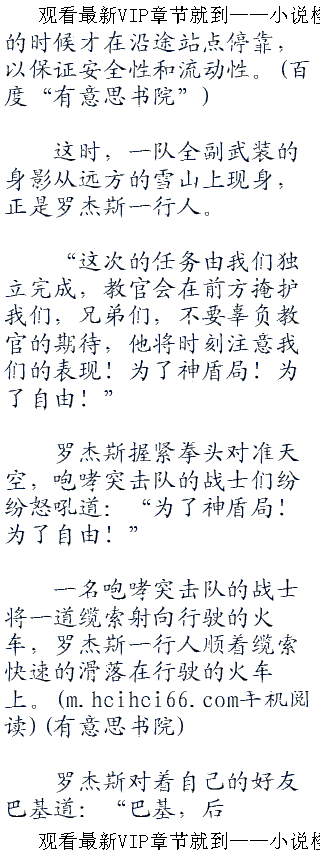 观看最新VIP章节就到——小说
的时候才在沿途站点停靠，
以保证安全性和流动性。(百
度“有意思书院”)
这时，一队全副武装的
身影从远方的雪山上现身，
正是罗杰斯一行人。
“这次的任务由我们独
立完成，教官会在前方掩护
我们，兄弟们，不要辜负教
官的期待，他将时刻注意我
们的表现！为了神盾局！为
了自由！”
罗杰斯握紧拳头对准天
空，咆哮突击队的战士们纷
纷怒吼道：“为了神盾局！
为了自由！”
一名咆哮突击队的战士
将一道缆索射向行驶的火
车，罗杰斯一行人顺着缆索
快速的滑落在行驶的火车
上。(m.hcihci66.com手机阅
读)(有意思书院)
罗杰斯对着自己的好友
巴基道：“巴基，后
观看最新VIP章节就到——小说